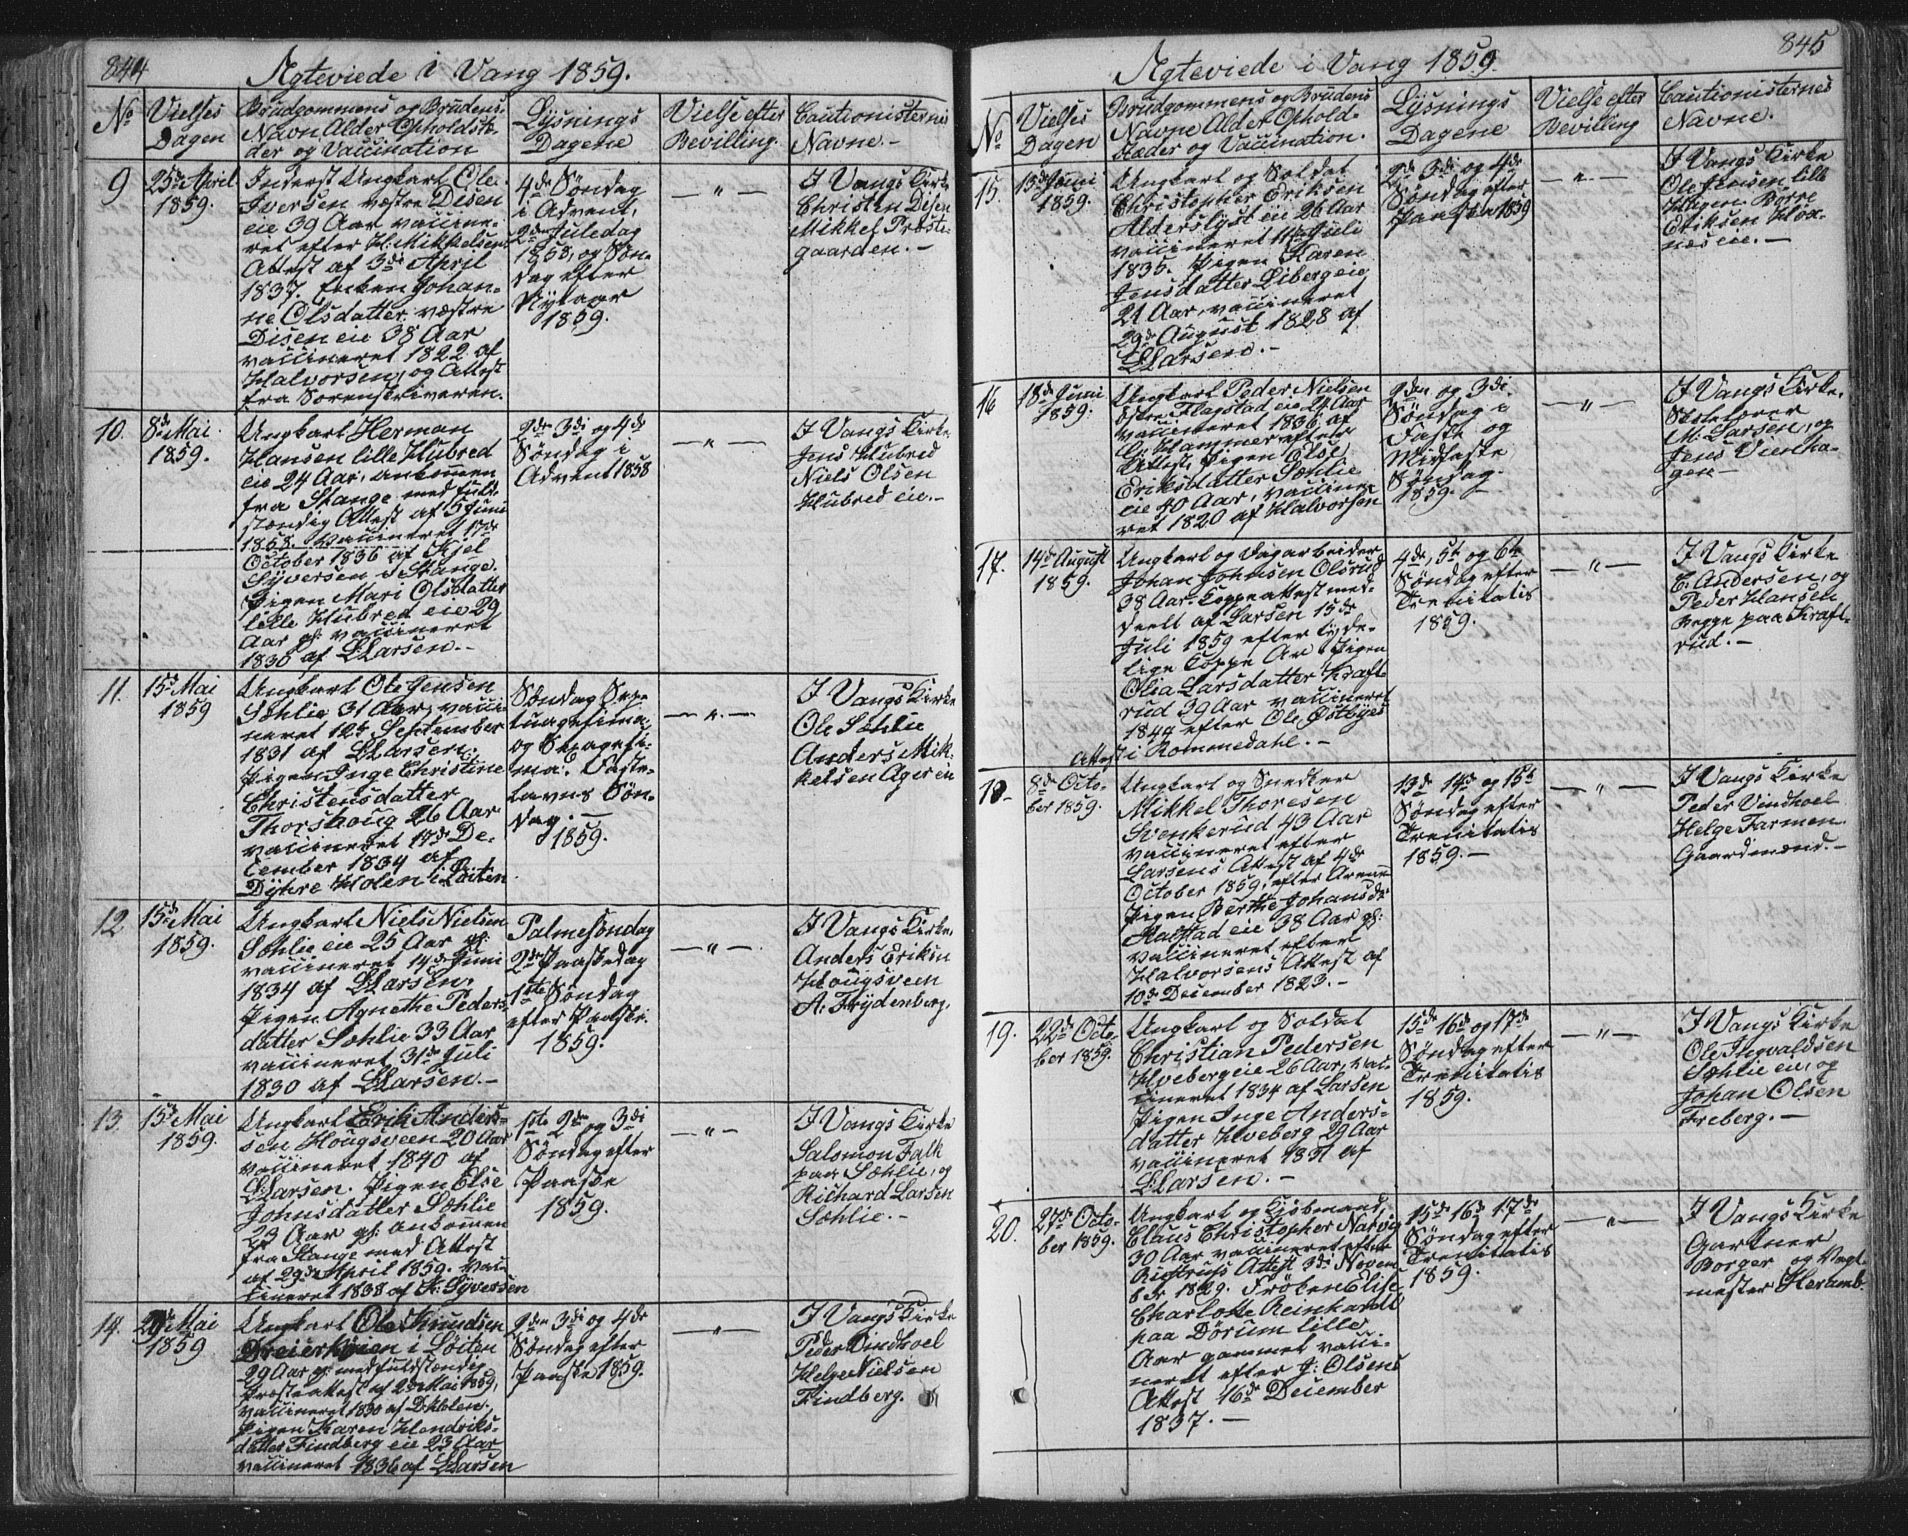 844
Ægteviede i Vang 1859.
No
Vielses
Dagen
Brudgommens og Brudens
Navn Alder Opholdste-
der og Vaccination
Lysnings
Dagene
Vielse efter
Bevilling.
Cautionisternes
Navne.-
9
25de April
1859.
Inderst Ungkarl Ole
Iversen væstre Disen
eie 39 Aar vaccine-
ret efter H: Mikkelsens
Attest af 3di April
1837. Enken Johan-
ne Olsdatter væstre
Disen eie 38 Aar
vaccineret 1822 af
Halvorsen, og Attest
fra Sorenskriveren.
4de Søndag
i Advent,
2den Juledag
1858, og Søn-
dag efter
Nytaar
1859.
— " —
I Vangs Kirke
Christen Disen
Mikkel Præste-
gaarden.-
10.
8de Mai
1859.
Ungkarl Herman
Hansen lille Hubred
eie 24 Aar, ankommen
fra Stange med fuld-
stændig Attest af 5 Juni
1858. Vaccineret 17de
October 1836 af Kjel
Syversen i Stange.
Pigen Mari Olsdatter
lille Hubred eie 29
Aar gl: vaccineret
1830 af L Larsen.-
2den 3di og 4de
Søndag i
Advent 1858
— " —
I Vangs Kirke
Jens Hubred
Niels Olsen
Hubred eie.-
11.
15de Mai
1859
Ungkarl Ole Jensen
Sæhlie 31 Aar, vacci-
neret 12te September
1831 af L Larsen.
Pigen Inge Christine
Christensdatter
Thorshoug 26 Aar
vaccineret 17de De-
cember 1834 af
Dyhre Holen i Løiten
Søndag Sep-
tuagesima,
og Sexagesi-
ma. Faste-
lavns Søn-
dag.-
1859.
— " —
I Vangs Kirke
Ole Sæhlie
Anders Mik-
kelsen Ager eie
12
15de Mai
1859.
Ungkarl Niels Nielsen
Sæhlie eie 25 Aar gl:
vaccineret 14de Juni
1834 af L Larsen.
Pigen Agnethe Peders-
datter Sæhlie 33 Aar
vaccineret 31de Juli
1830 af L Larsen.-
Palmesøndag
2den Paaskedag
1ste Søndag
efter Paaske.
1859.
— " —
I Vangs Kirke,
Anders Eriksen
Hougsveen
A: Frydenberg,
13.
15de Mai
1859.
Ungkarl Erik Anders-
sen Hougsveen 20 Aar
vaccineret 1840 af
L Larsen. Pigen Else
Johnsdatter Sæhlie
29 Aar gl: ankommen
fra Stange med Attest
af 29de April 1859. Vac-
cineret 1838 af K: Syversen
1ste 2den og 3di
Søndag efter
Paaske
1859.
— " —
I Vangs Kirke
Salomon Falk
paa Sæhlie, og
Richard Larsen
Sæhlie.-
14.
Mai
1859
Ungkarl Ole Knudsen
i Løiten
29 Aar gl: med fuldstændig
Præsteattest af 2den Mai 1859,
vaccineret 1830 af D: Holen.
Pigen Karen Hendriks-
datter Findberg eie 23 Aar
vaccineret 1836 af L Larsen
2den 3di og 4de
Søndag efter
Paaske 1859.
— " —
I Vangs Kirke
Peder Vindhoel
Helge Nielsen
Findberg.
845
Ægteviede i Vang 1859.
No
Vielses
Dagen
Brudgommens og Brudens
Navne Alder Ophold-
stæder og Vaccination.
Lysnings
Dagene
Vielse efter
Bevilling
Cautionisternes
Navne.
15.
13de Juni
1859.
Ungkarl og Soldat
Christopher Eriksen
Alderslyst eie 26 Aar
vaccineret 11te Juli
1835. Pigen Karen
Jensdatter Liberg eie
21 Aar, vaccineret
29de August 1828 af
L Larsen.-
2de 3di og 4de
Søndag efter
Paaske 1859
— " —
I Vangs Kirke
Ole Jensen lille
Børre
Eriksen Hox-
næs eie.-
16
18de Juni
1859.
Ungkarl Peder Nielsen
østre Flagstad eie 24 Aar
vaccineret 1836 af
C: Hammer efter
Attest, Pigen Else
Eriksdatter Sæhlie
eie 40 Aar, vaccine-
ret 1820 af Halvorsen
2den og 3di
Søndag i
Faste og
Midfaste
Søndag.
1859.-
— " —
I Vangs Kirke.
Skolelærer
M: Larsen, og
Jens Vienha-
gen-
17.
14de August
1859.
Ungkarl og Dagarbeider
Johan Johnsen Olsrud
38 Aar. Koppeattest med-
deelt af Larsen 15de
Juli 1859 efter tyde-
lige Koppe Ar Pigen
Olia Larsdatter Kraft-
rud 39 Aar vaccineret
1844 efter Ole Østbyes
Attest i Rommedahl.-
4de, 5te og 6te
Søndag efter
Trenitatis
1859.
— " —
I Vangs Kirke
E: Andersen, og
Peder Hansen
begge paa Kraft-
rud.-
18-
8de Octo-
ber 1859.
Ungkarl og Snedker
Mikkel Thoresen
Svenkerud 43 Aar
vaccineret efter
Larsens Attest af 4de
October 1859, efter Arene
Pigen Berthe Johansdr
Kaastad eie 38 Aar gl:
vaccineret efter
Halvorsens Attest af
10de December 1823.-
13de 14de og 15de
Søndag efter
Trenitatis
1859.-
— " —
I Vangs Kirke
Peder Vindhoel
Helge Farmen
Gaardmænd.-
19.
22de Octo-
ber 1859.
Ungkarl og Soldat
Christian Pedersen
Hveberg eie 26 Aar, vac-
cineret 1834 af Larsen
Pigen Inge Anders-
datter Hveberg 29 Aar
vaccineret 1831 af
L Larsen.-
15de 16de og 17de
Søndag efter
Trenitatis
1859.
— " —
I Vangs Kirke
Ole Ingvaldsen
Sæhlie eie, og
Johan Olsen
Freberg.-
20.
27de Octo-
ber 1859.
Ungkarl og Kjøbmand,
Claus Christopher Narvig
30 Aar vaccineret efter
Attest 3de Novem-
ber 1829. Frøken Elise
Charlotte Reinhardt
paa Dørum lille
Aar gammel vacci-
neret efter J: Olsens
Attest 16de December
1837.-
15de 16de 17de
Søndag efter
Trenitatis
1859.
— " —
I Vangs Kirke
Gartner
Borger og Vagt-
mester Heramb.